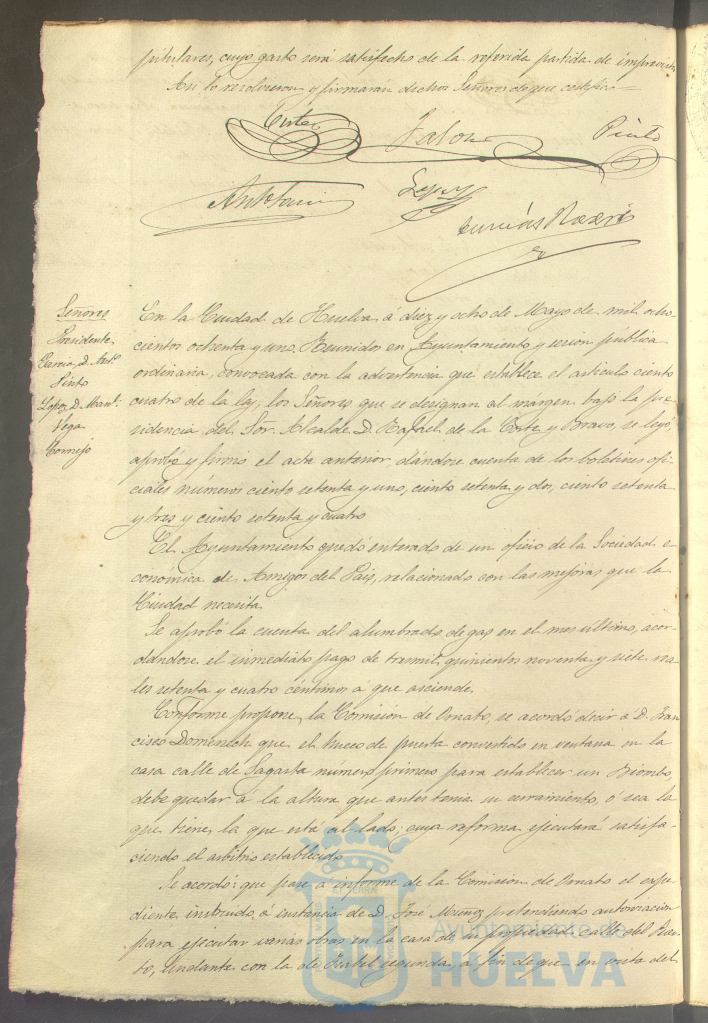 pitulares, cuyo gasto será satisfecho de la referida partida de imprevistos
Asi lo resolvieron y firmaran dichos Señores de que certifico=
Corte Jalon Pinto
Antº Garcia Lopez
Señores
Presidente
Garcia, D. Antº
Pinto
Lopez, D. Manl.
Vega
Cornejo
En la Ciudad de Huelva á diez y ocho de Mayo de mil ocho
cientos ochenta y uno, Reunidos en Ayuntamiento y sesion pública
ordinaria, convocada con la advertencia que establece el articulo ciento
cuatro de la ley, los Señores que se designan al margen bajo la pre
sidencia del Sor. Alcalde D. Rafael de la Corte y Bravo, se leyó,
aprobó y firmó el acta anterior, dándose cuenta de los boletines ofi
ciales números ciento setenta y uno, ciento setenta y dos, ciento setenta
y tres y ciento setenta y cuatro
El Ayuntamiento quedó enterado de un oficio de la Sociedad e-
conómica de Amigos del Pais, relacionado con las mejoras que la
Ciudad necesita.
Se aprobó la cuenta del alumbrado de gas en el mes último, acor-
dandose el inmediato pago de tresmil quinientos noventa y siete rea-
les setenta y cuatro céntimos á que asciende.
Conforme propone la Comisión de Ornato, se acordó decir á D. Fran
cisco Domenech que el hueco de puerta convertido en ventana en la
casa calle de Sagasta número primero para establecer un Biombo,
debe quedar á la altura que antes tenia su cerramiento, ó sea la
que tiene, la que está al lado; cuya reforma ejecutará satisfa-
ciendo el arbitrio establecido
Se acordó: que pase á informe de la Comisión de Ornato el espe-
diente instruido á instancia de D. José Muñoz pretendiendo autorizacion
para ejecutar varias obras en la casa de su propiedad calle del Puer-
to, lindante con la de Isabel segunda, á fin de que en vista del
Ayuntamiento de
HUELVA